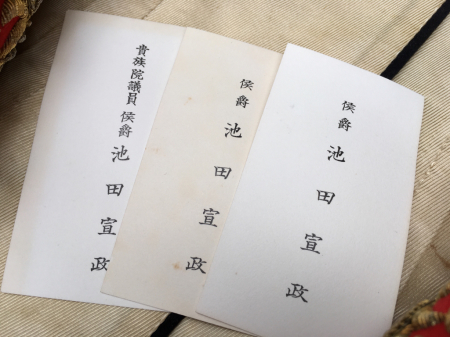 貴族院議員 侯爵 池田宣政
侯爵 池田宣政
侯爵 池田宣政